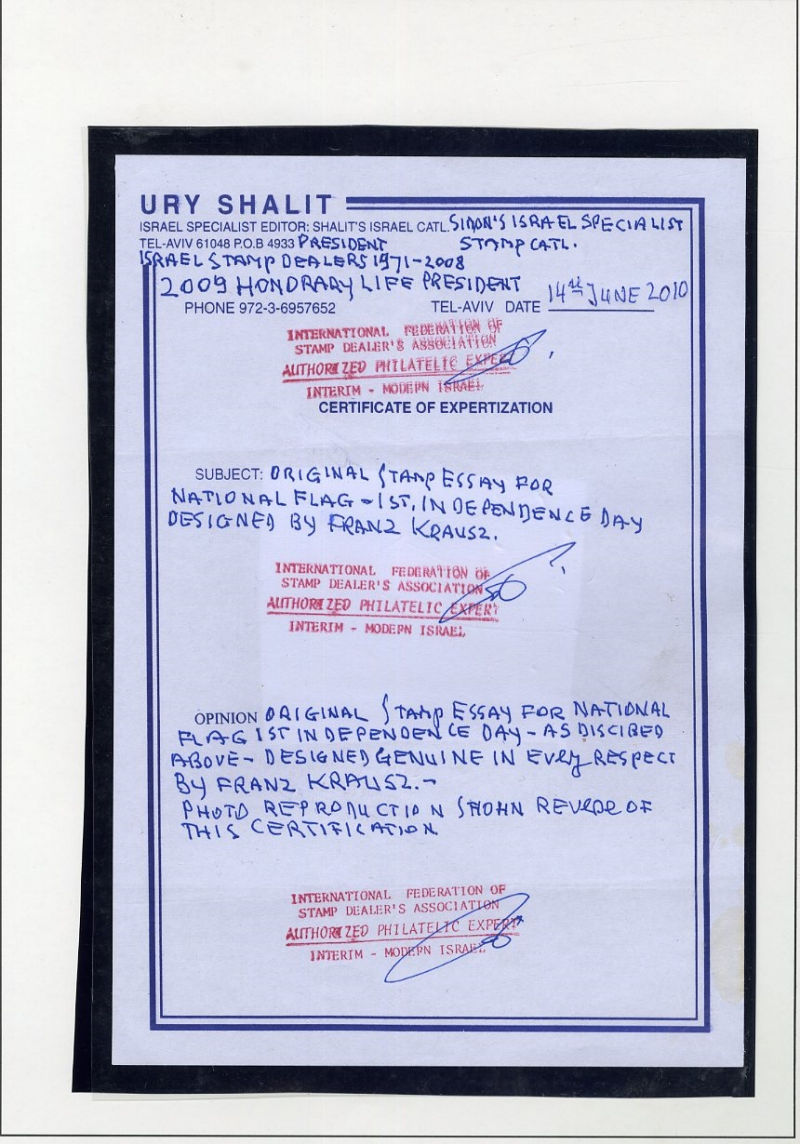 URY SHALIT
ISRAEL SPECIALIST EDITOR: SHALIT'S ISRAEL CATL. SIMON'S ISRAEL SPECIALIST
TEL-AVIV 61048 P.O.B 4933 PRESIDENT STAMP CATL.
ISRAEL STAMP DEALERS 1971-2008
2009 HONDRARY LIFE PRESIDENT
PHONE 972-3-6957652 TEL-AVIV DATE 14th JUNE 2010
INTERNATIONAL FEDERATION OF
STAMP DEALER'S ASSOCIATION
AUTHORIZED PHILATELIC EXPERT
INTERIM - MODERN ISRAEL
CERTIFICATE OF EXPERTIZATION
SUBJECT: ORIGINAL STAMP ESSAY FOR
NATIONAL FLAG - 1ST. INDEPENDENCE DAY
DESIGNED BY FRANZ KRAUSZ.
INTERNATIONAL FEDERATION OF
STAMP DEALER'S ASSOCIATION
AUTHORIZED PHILATELIC EXPERT
INTERIM - MODERN ISRAEL
OPINION ORIGINAL STAMP ESSAY FOR NATIONAL
FLAG 1ST INDEPENDENCE DAY - AS DISCIBED
ABOVE - DESIGNED GENUINE IN EVERY RESPECT
BY FRANZ KRAUSZ. -
PHOTO REPRODUCTION SHOHN REVERE OF
THIS CERTIFICATION
INTERNATIONAL FEDERATION OF
STAMP DEALER'S ASSOCIATION
AUTHORIZED PHILATELIC EXPERT
INTERIM - MODERN ISRAEL